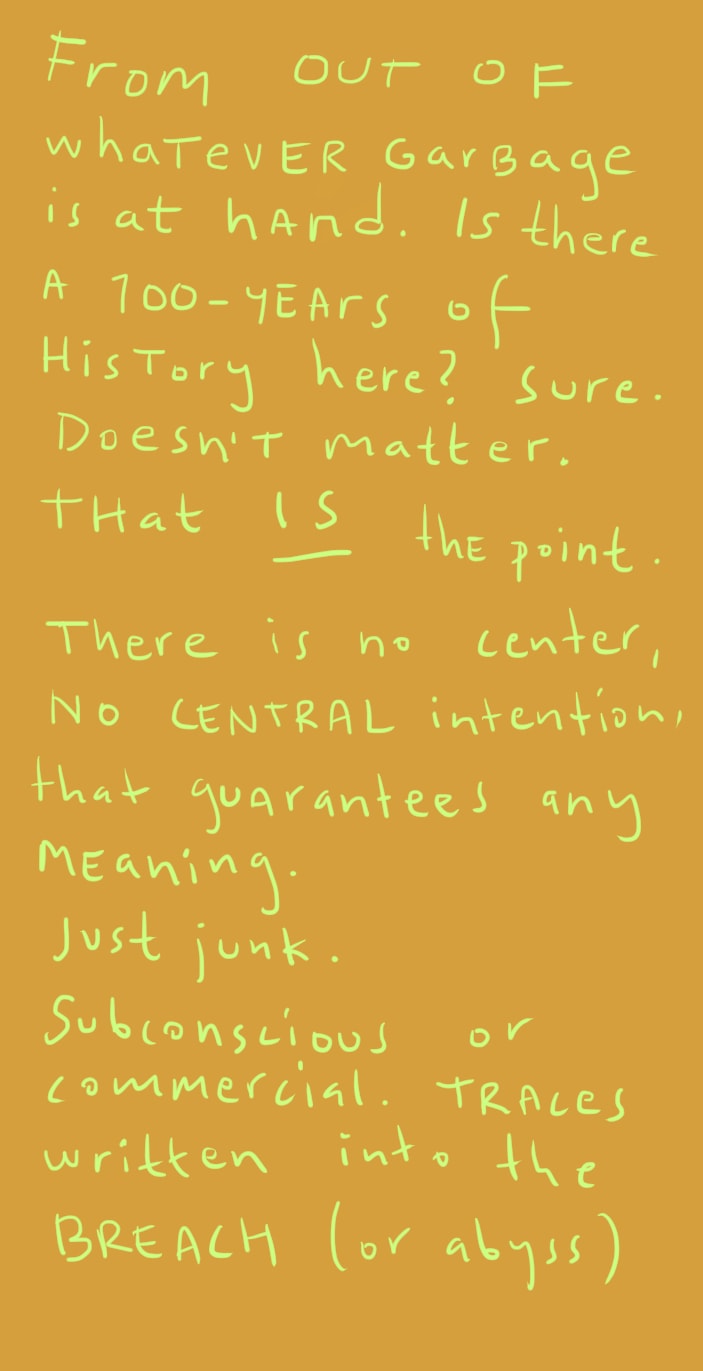 From OUT OF
whaTevER GarBage
is at hAnd. Is there
A 100-YEArs of
HisTory here? Sure.
Doesn'T matter.
THat IS the point.
There is no center,
NO CENTRAL intention,
that guArantees any
MEaning.
Just junk.
Subconscious or
commercial. TRACES
written into the
BREACH (or abyss)